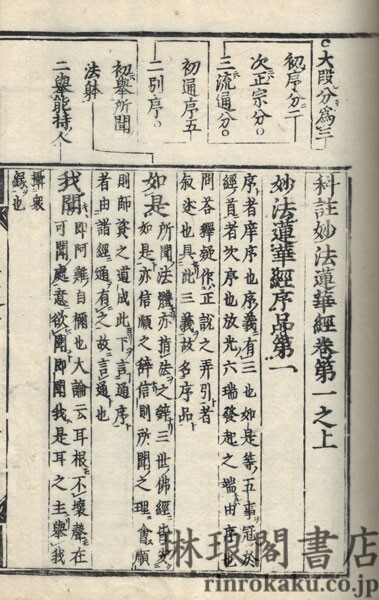 大段分爲三
初序分二
次正宗分
三流通分
初通序五
二引序
初擧所聞
法躰
二擧能持人
科註妙法蓮華經卷第一之上
妙法蓮華經序品第一
序者庠序也序義有三也如是等五事冠於
經首者次序也放光六瑞發起之端由序也
問答釋疑作正說之弄引者
叙述也具此三義故名序品
如是
所聞法躰亦指法之辭三世佛經皆安
如是亦信順之辭信則所聞之理會順
則師資之道成此下言通序
者由諸經通有之故言通也
我聞
即阿難自稱也大論云耳根不壞聲在
可聞處意欲聞即聞我是耳之主擧我
攝衆
録也
林琅閣書店
rinrokaku.co.jp